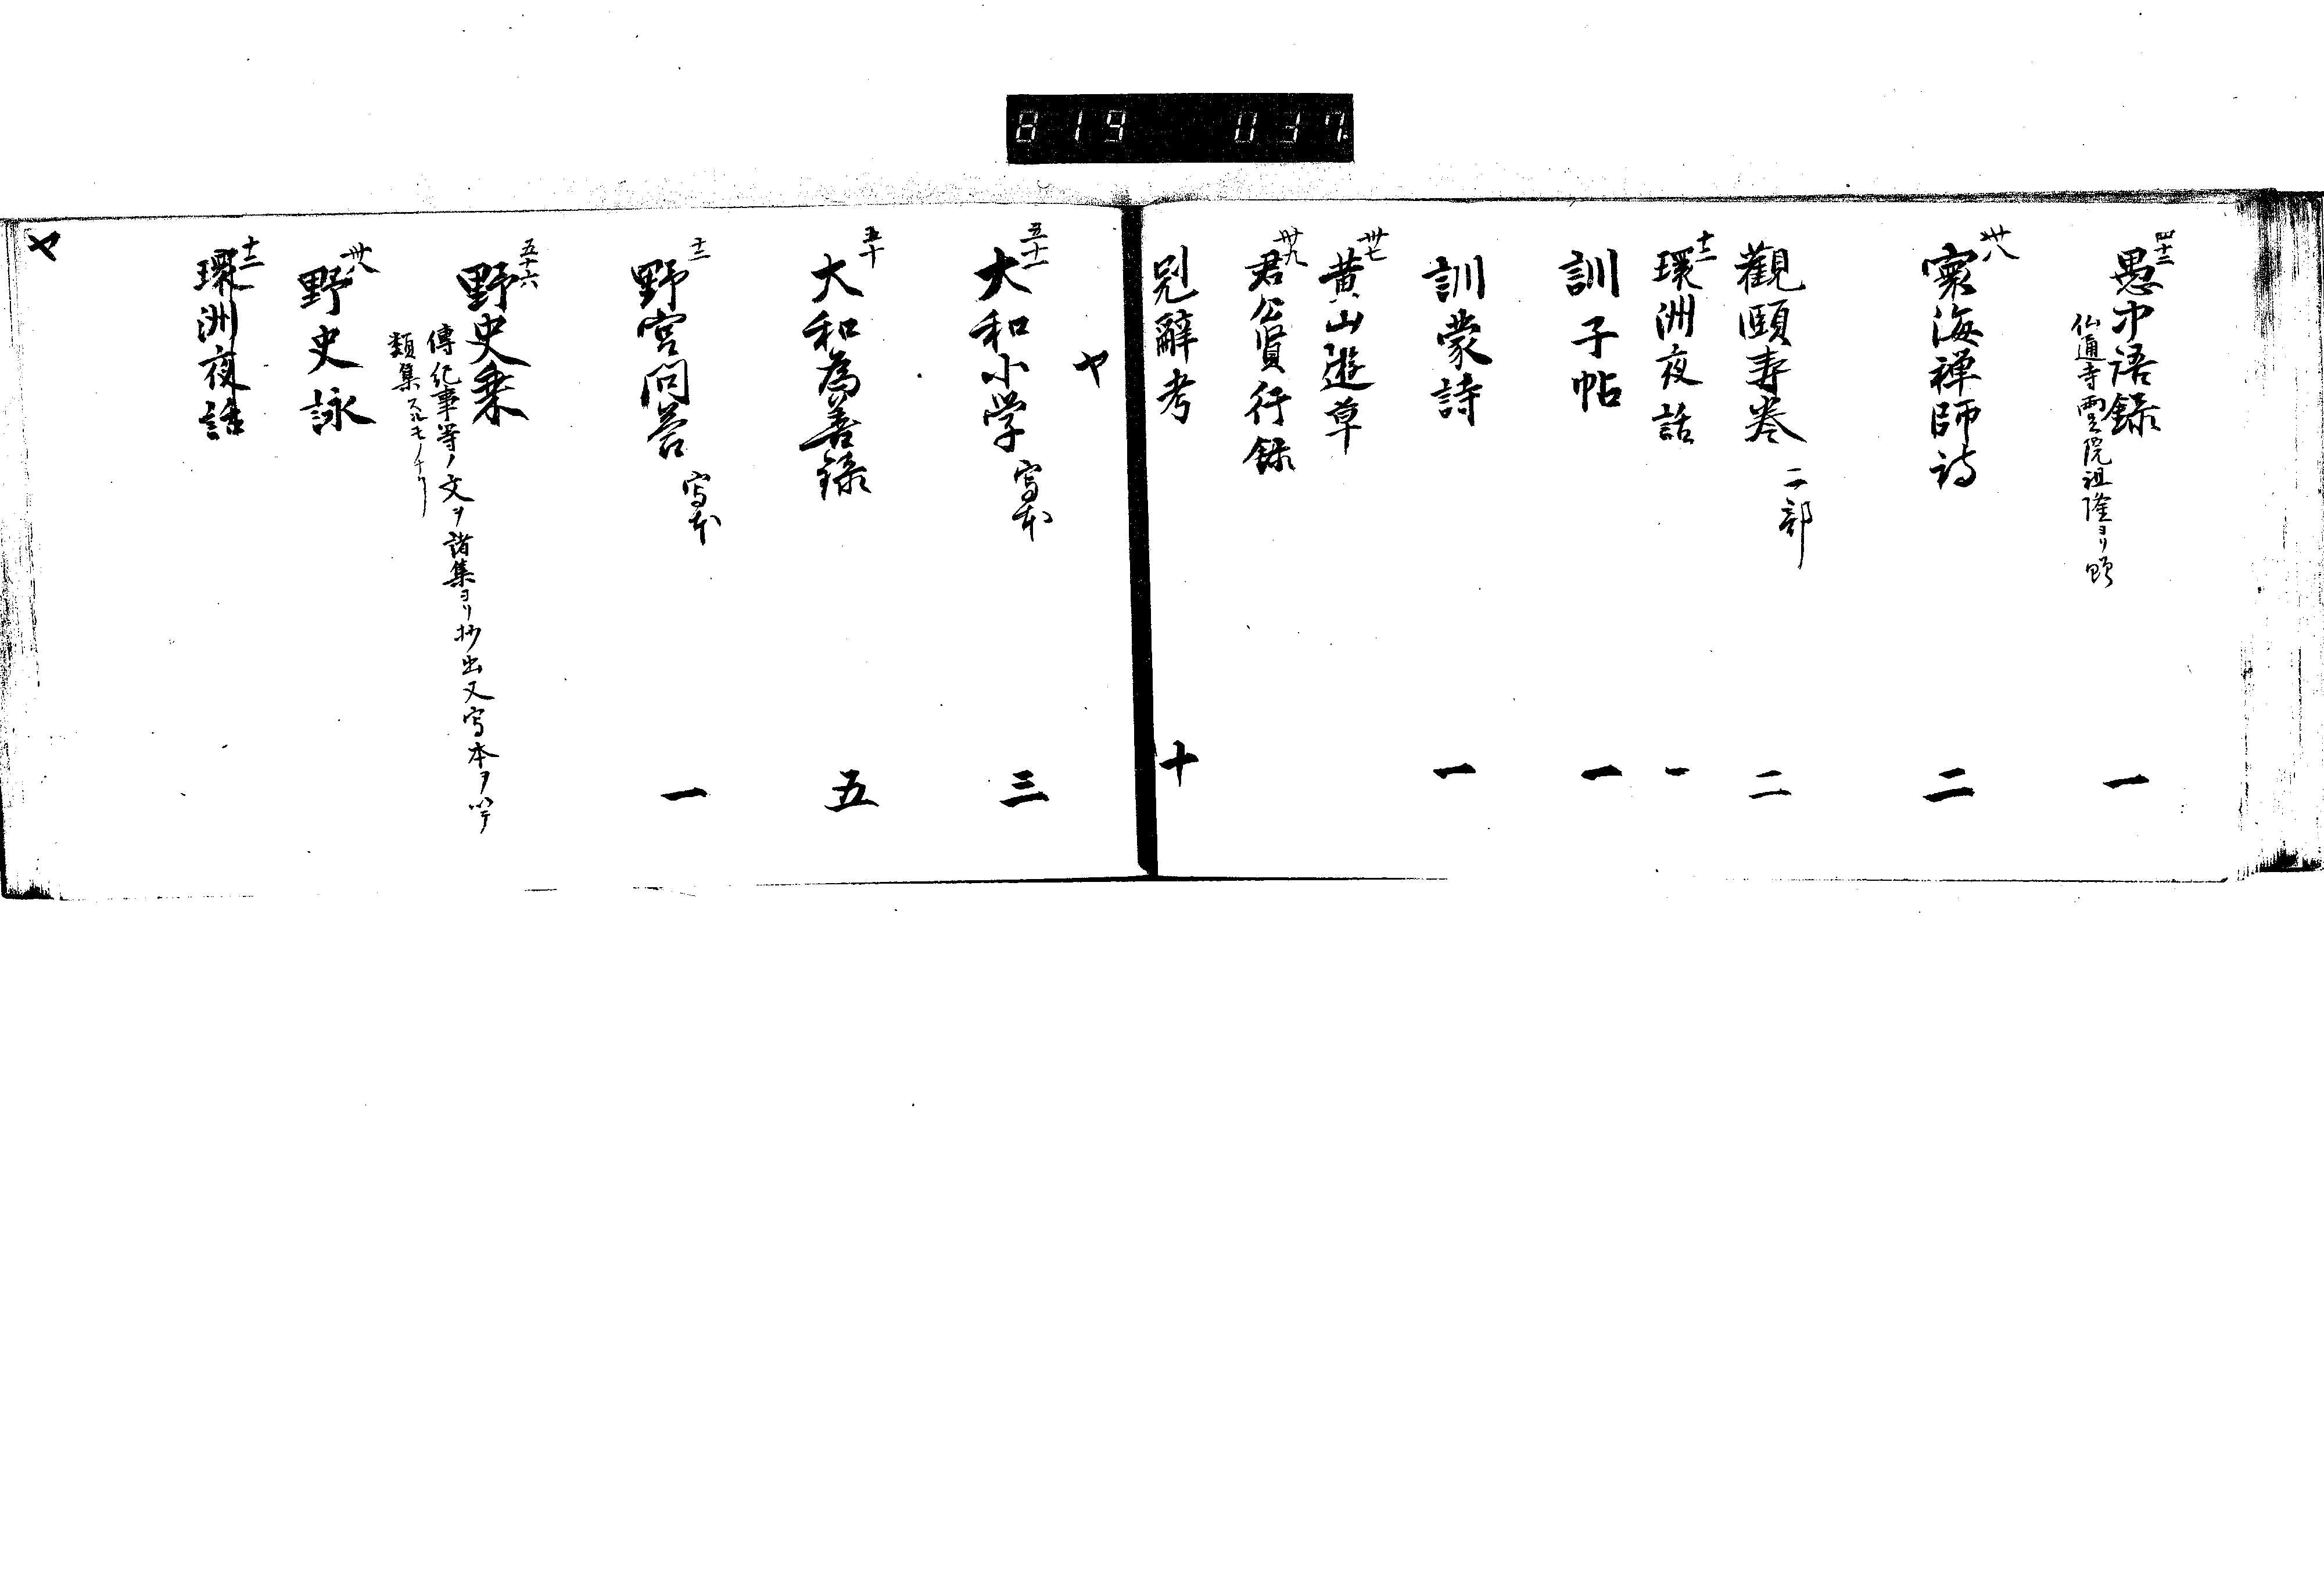 819 037
四十三 愚中語録 一
仏通寺霊院祖隆ヨリ贈
卅八 寰海禅師詩 二
觀頤寿巻 二部 二
十二 環洲夜話 一
訓子帖 一
訓蒙詩 一
卅七 黄山遊草
卅九 君公賓行録
兕辭考 十
ヤ
五十一 大和小学 寫本 三
五十 大和為善録 五
十二 野宮問荅 寫本 一
五十六 野史乗
傳紀事等ノ文ヲ諸集ヨリ抄出又寫本ヲ以テ
類集スルモノナリ
卅八 野史詠
十二 環洲夜話
ヤ